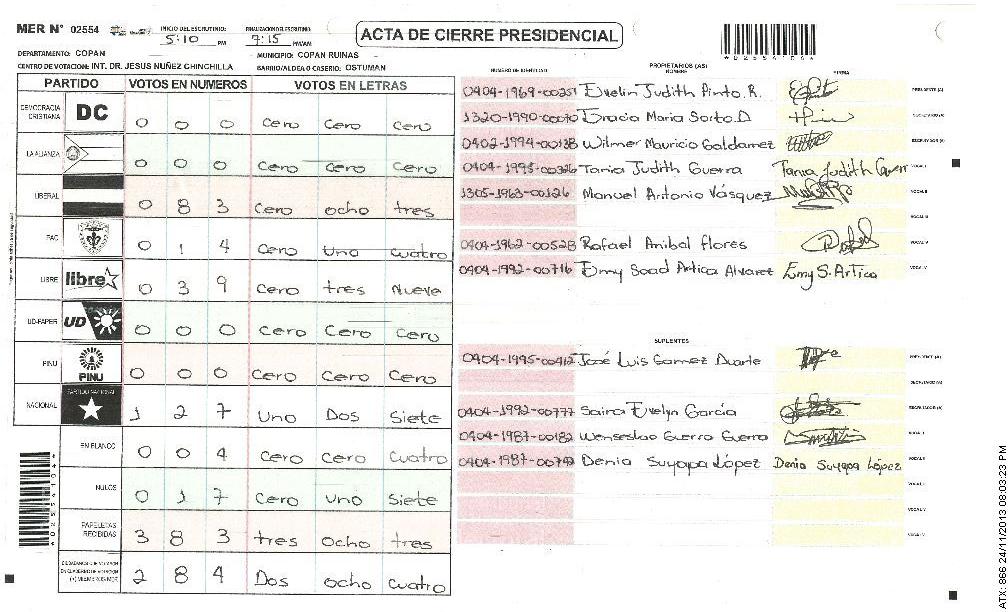 MER N° 02554 INICIO DEL ESCRUTINIO: 5:10 PM FINALIZACION DEL ESCRUTINIO: 7:15 PM/AM ACTA DE CIERRE PRESIDENCIAL
DEPARTAMENTO: COPAN MUNICIPIO: COPAN RUINAS
CENTRO DE VOTACION: INT. DR. JESUS NUÑEZ CHINCHILLA BARRIO/ALDEA O CASERIO: OSTUMAN
PARTIDO VOTOS EN NUMEROS VOTOS EN LETRAS
DEMOCRACIA CRISTIANA DC 0 0 0 cero cero cero
LA ALIANZA 0 0 0 cero cero cero
LIBERAL 0 8 3 cero ocho tres
PAC 0 1 4 cero uno cuatro
LIBRE libre 0 3 9 cero tres Nueve
UD-FAPER UD 0 0 0 cero cero cero
PINU PINU 0 0 0 cero cero cero
NACIONAL PARTIDO NACIONAL 1 2 7 Uno Dos Siete
EN BLANCO 0 0 4 cero cero cuatro
NULOS 0 1 7 cero uno Siete
PAPELETAS RECIBIDAS 3 8 3 tres ocho tres
2 8 4 Dos ocho cuatro
NUMERO DE IDENTIDAD PROPIETARIOS (AS) NOMBRE FIRMA
0404-1969-00251 Evelin Judith Pinto R. PRESIDENTE (A)
1320-1990-00070 Gracia Maria Sorto D SECRETARIO (A)
0402-1994-00138 Wilmer Mauricio Galdamez ESCRUTADOR (A)
0404-1995-00326 Tania Judith Guerra Tania Judith Guerr VOCAL I
1305-1963-00126 Manuel Antonio Vásquez VOCAL II
VOCAL III
0404-1962-00528 Rafael Anibal flores VOCAL IV
0404-1992-00716 Emy Soad Artica Alvarez Emy S. Artica VOCAL V
SUPLENTES
0404-1995-00412 José Luis Gomez Duarte PRESIDENTE (A)
SECRETARIO (A)
0404-1992-00777 Saira Evelyn García ESCRUTADOR (A)
0404-1987-00182 Wenseslao Guerra Guerra VOCAL I
0404-1987-00742 Denia Suyapa López Denia Suyapa López VOCAL II
VOCAL III
VOCAL IV
VOCAL V
ATX: 866 24/11/2013 08:03:23 PM